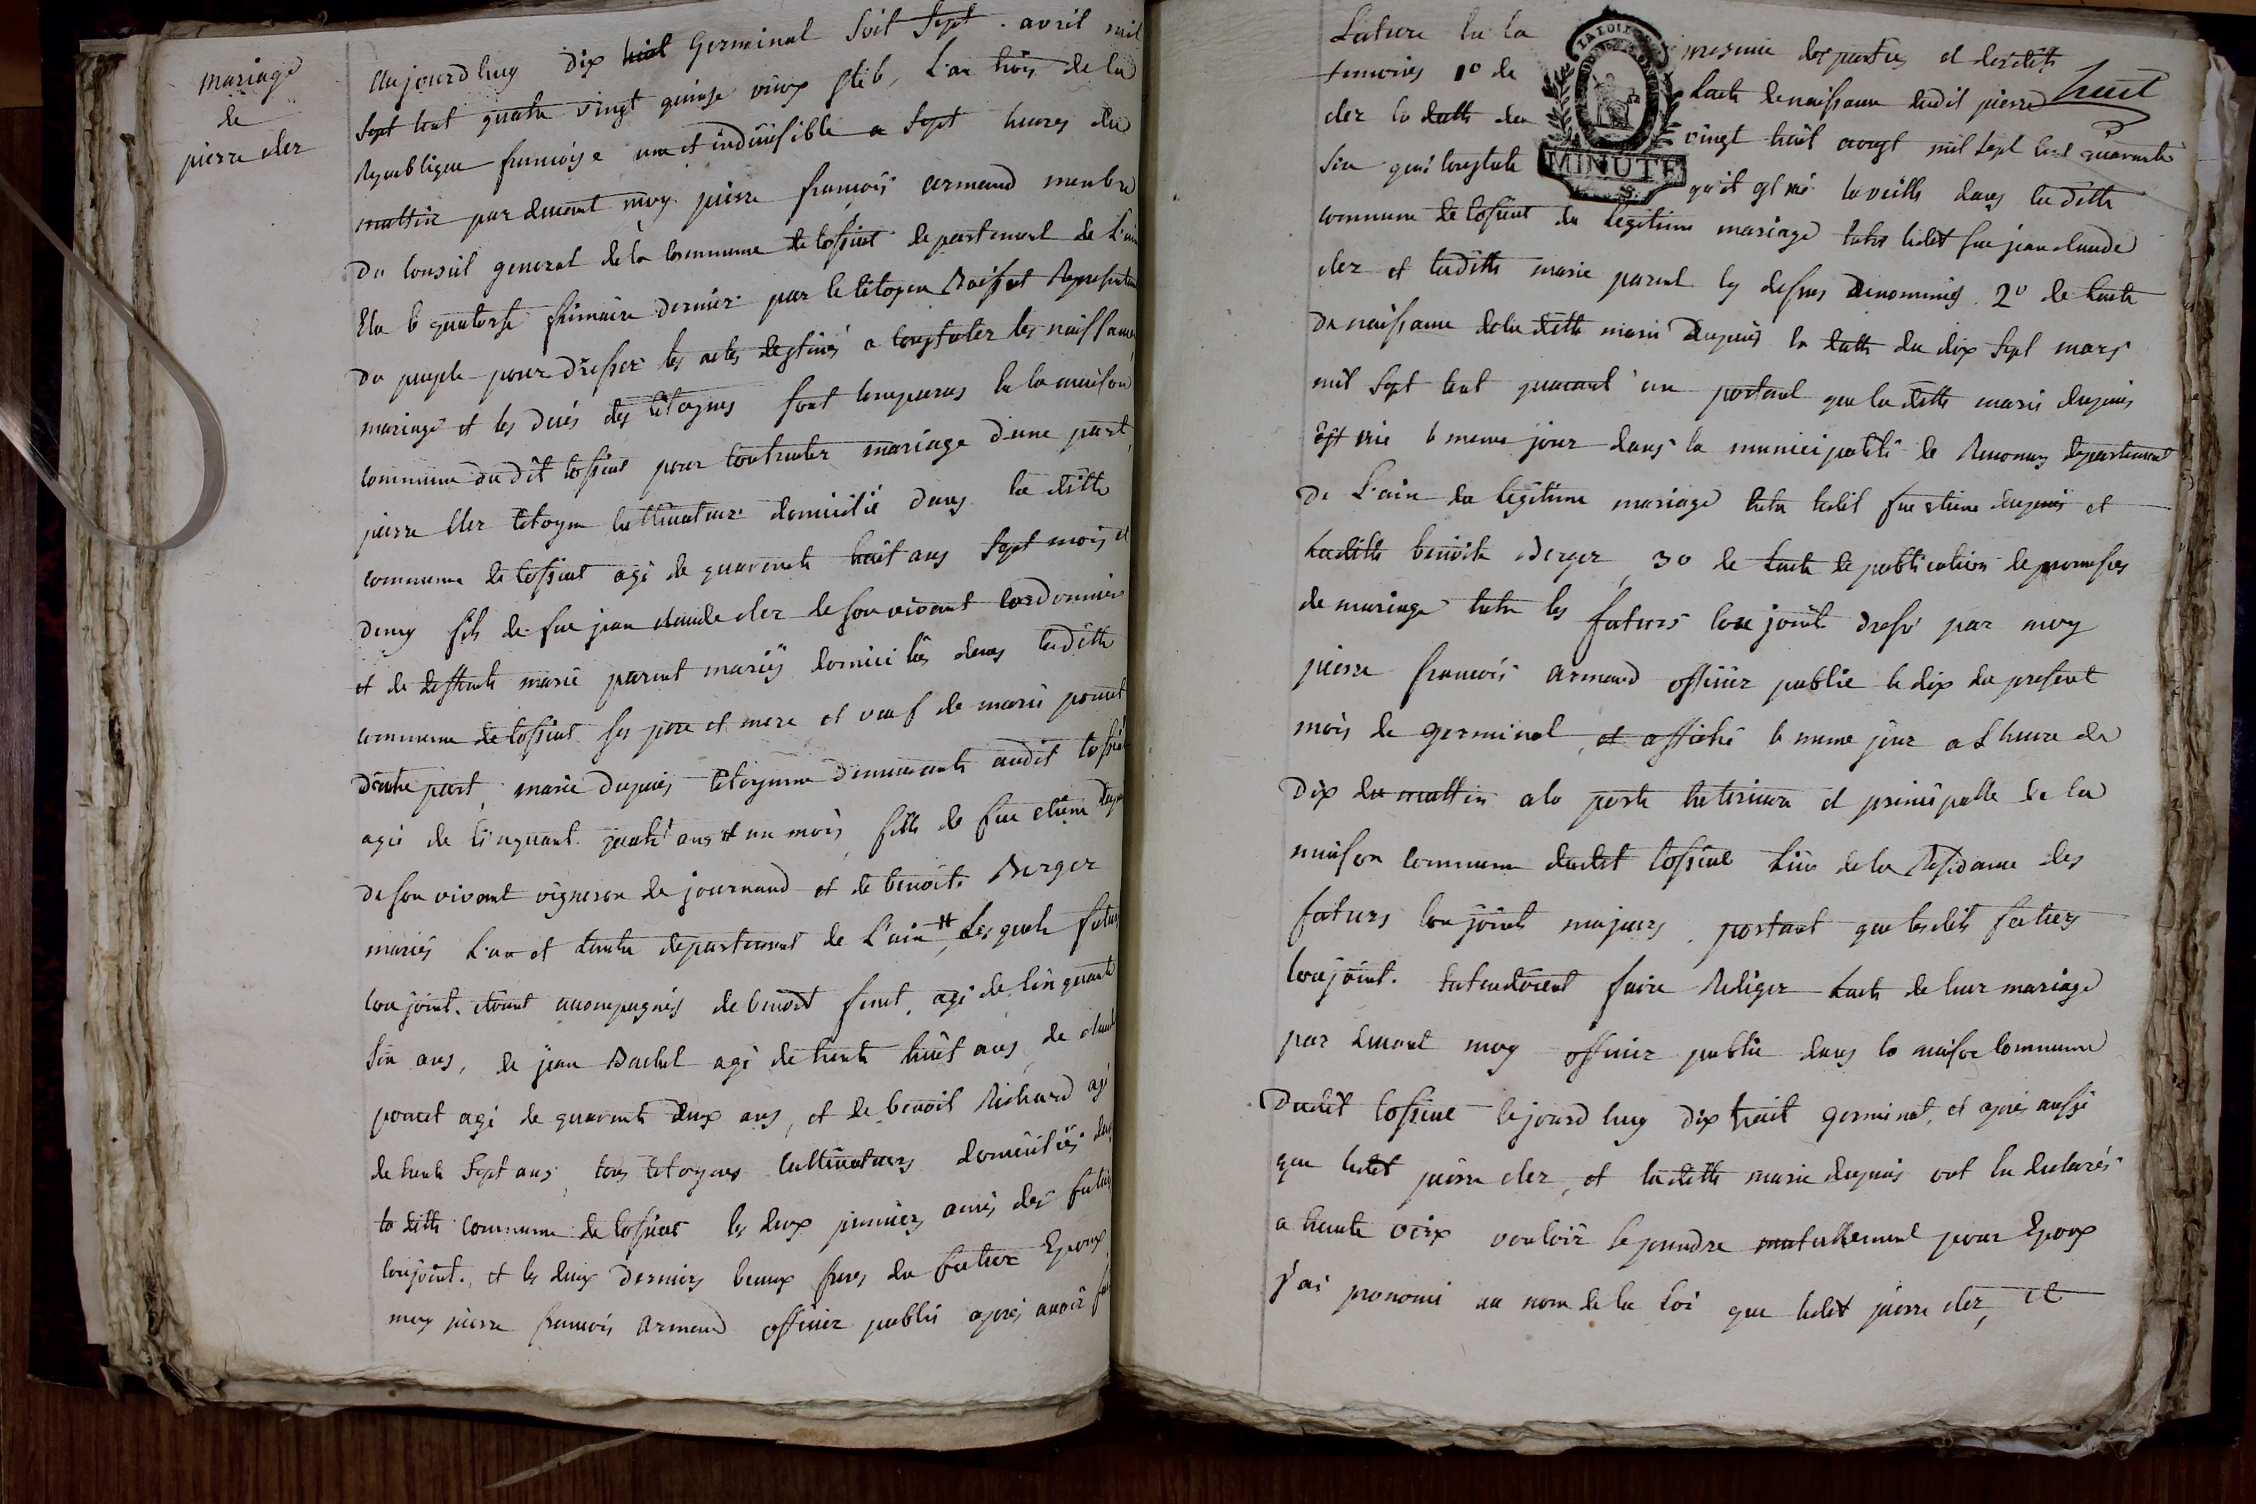 mariage
de
pierre clez
Aujourdhuy dix huit Germinal soit sept avril mil
sept cent quatre vingt quinze vieux stile, L'an trois de la
Republique francoise une et indiuisible a sept heures du
mattin par deuant moy pierre francois armand membre
du Conseil general de la Commune de Cossieux departement de L'ain
Elu le quatorze frimaire dernier par le Citoyen Boisset Representant
du peuple pour dresser les actes destinés a Constater les naissances
mariage et les decés des Citoyens sont Comparus En la maison
Commune du dit Cossieux pour Contracter mariage d'une part
pierre Clez Citoyen Cultiuateur domicilié dans la ditte
commune de Cossieux agé de quarente huit ans sept mois et
demy fils de feu jean claude clez de son vivant Cordonnier
et de deffuncte marie parent mariés domiciliés dans laditte
commune de Cossieux ses pere et mere et veuf de marie poncet
d'autre part, marie dupuis Citoyenne demeurante audit Cossieux
agée de Cinquant quatre ans et un mois, fille de feu etiene dupuis
de son vivant vigneron de journand et de benoite Berger
mariés L'un et Lautre departement de L'ain, Les quels futurs
Conjoint. etant accompagnés de benoit ferret, agé de Cinquante
Six ans, de jean Bachel agé de trente huit ans, de claude
poncet agé de quarente deux ans, et de benoit Richard agé
de trente sept ans, tous Citoyens Cultiuateurs domiciliés dans
la ditte commune de Cossieux les deux premiers amis des futurs
Conjoint., et les deux derniers beaux freres du futur Epoux
moy pierre francois armand officier public apres auoir fait
Lecture En la presence des parties et desdits
temoins 1° de Lacte denaissance dudit pierre huit
clez la datte du vingt huit aougt mil sept cent quarente
six qui Constate qu'il est né la veille dans laditte
commune de Cossieux du legitime mariage Entre ledit feu jean claude
clez et laditte marie parent Cy dessus Denommés. 2° de Lacte
de naissance de la ditte marie Dupuis la datte du dix sept mars
mil sept cent quarant'un portant que laditte marie dupuis
Est née le meme jour dans la municipalité de Revonnas departement
de L'ain du legitime mariage Entre ledit feu etiene dupuis et
laditte benoite Berger, 3° de Lacte de publication de promesses
de mariage Entre les futurs Conjoint dressé par moy
pierre francois armand officier public le dix du present
mois de germinal, et affiché le meme jour a L'heure de
dix du mattin a la porte Exterieure et principalle de la
maison commune dudit Cossieux Lieu de la Residance des
futurs Conjoints majeurs, portant que lesdits futurs
Conjoint. Entendoient faire Rediger Lacte de leur mariage
par deuant moy officier public dans la maison Commune
dudit Cossieux Cejourdhuy dix huit germinal, et apres aussi
que ledit pierre clez, et laditte marie dupuis ont Eu declarés
a haute voix vouloir se prendre mutuellement pour Epoux
j'ai prononcé au nom de la Loi que ledit pierre clez, et
LA LOI
MINUTE